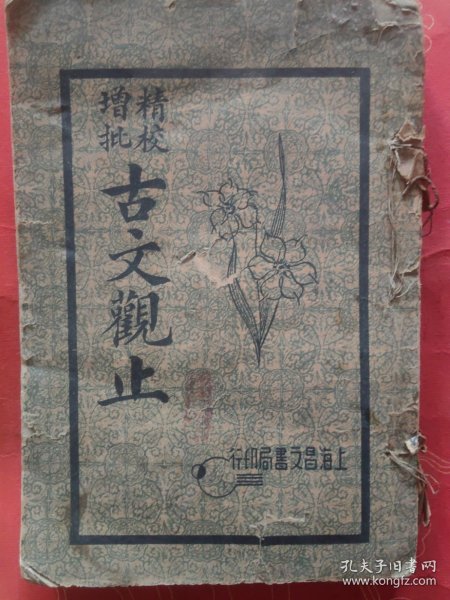 精校
增批
古文觀止
上海昌文書局印行
孔夫子旧书网
www.kongfz.com